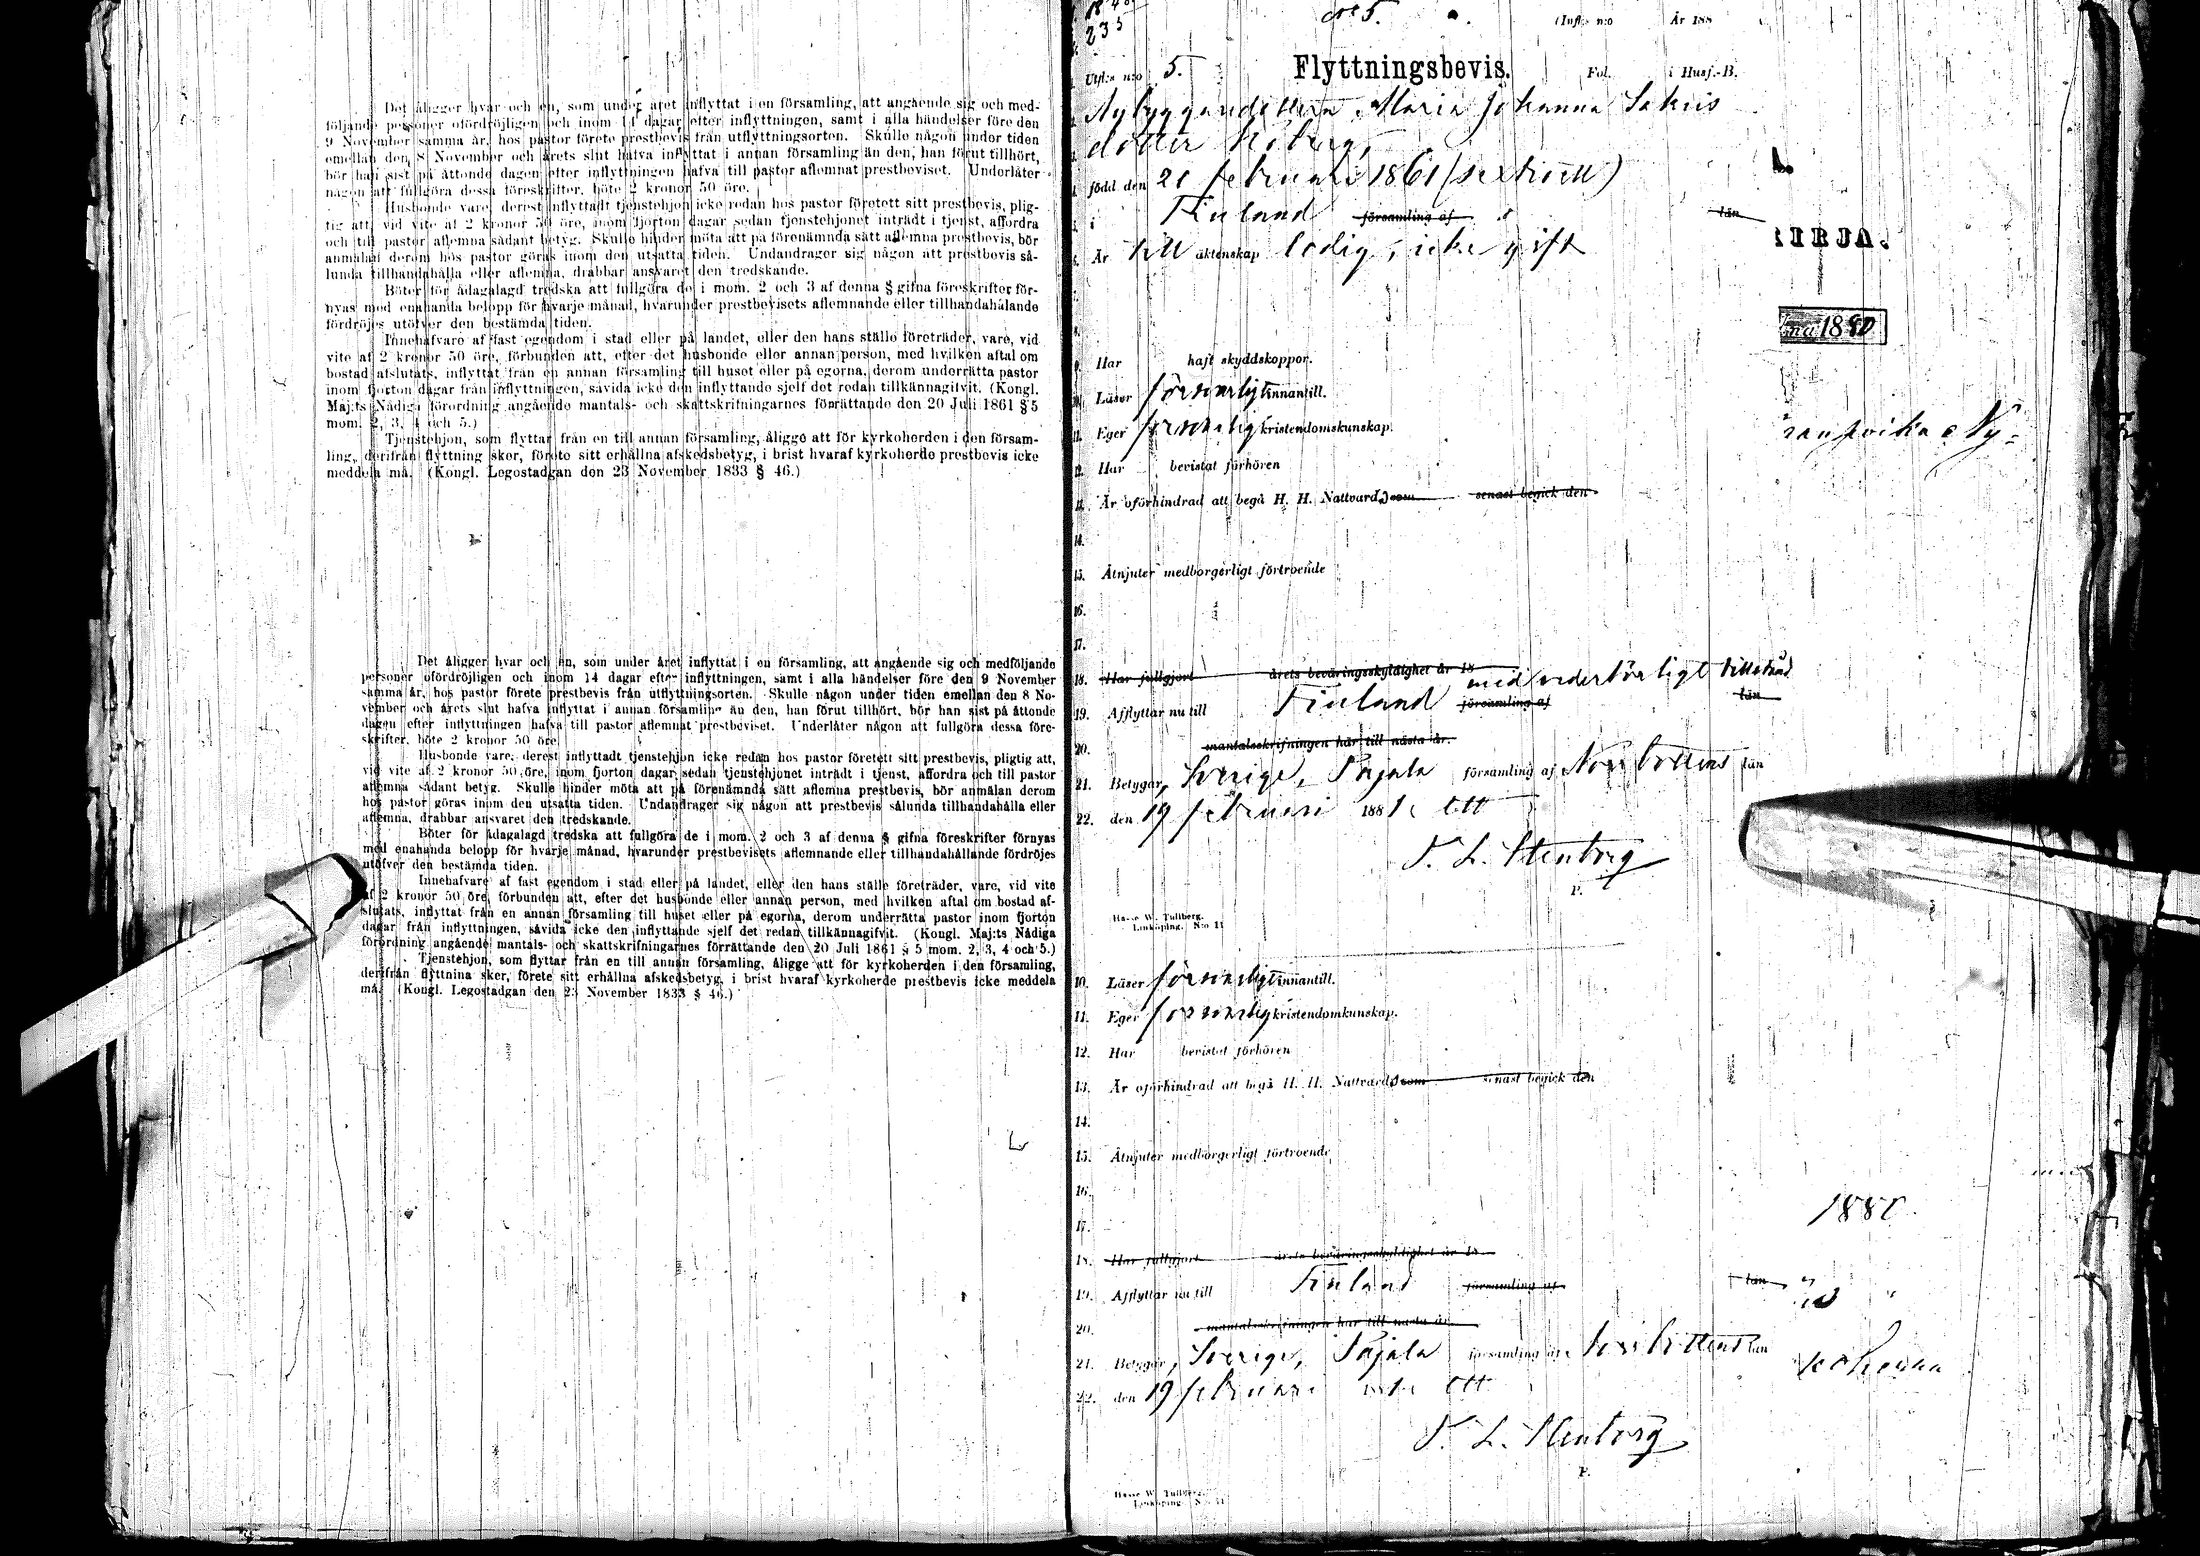 Det åligger hvar och en, som under året inflyttat i en församling, att angående sig och med-
följande personer ofördröjligen och inom 14 dagar efter inflyttningen, samt i alla händelser före den
9 November samma år, hos pastor förete prestbevis från utflyttningsorten. Skulle någon under tiden
emellan den 8 November och årets slut hafva inflyttat i annan församling än den, han förut tillhört,
bör han sist på åttonde dagen efter inflyttningen hafva till pastor aflemnat prestbeviset. Underlåter
någon att fullgöra dessa föreskrifter, böte 2 kronor 50 öre.
Husbonde vare, derest inflyttadt tjenstehjon icke redan hos pastor företett sitt prestbevis, plig-
tig att, vid vite af 2 kronor 50 öre, inom fjorton dagar sedan tjenstehjonet inträdt i tjenst, affordra
och till pastor aflemna sådant betyg. Skulle hinder möta att på förenämnda sätt aflemna prestbevis, bör
anmälan derom hos pastor göras inom den utsatta tiden. Undandrager sig någon att prestbevis så-
lunda tillhandahålla eller aflemna, drabbar ansvaret den tredskande.
Böter för ådagalagd tredska att fullgöra de i mom. 2 och 3 af denna § gifna föreskrifter för-
nyas med enahanda belopp för hvarje månad, hvarunder prestbevisets aflemnande eller tillhandahålande
fördröjes utöfver den bestämda tiden.
Innehafvare af fast egendom i stad eller på landet, eller den hans ställe företräder, vare, vid
vite af 2 kronor 50 öre, förbunden att, efter det husbonde eller annan person, med hvilken aftal om
bostad afslutats, inflyttat från en annan församling till huset eller på egorna, derom underrätta pastor
inom fjorton dagar från inflyttningen, såvida icke den inflyttande sjelf det redan tillkännagifvit. (Kongl.
Maj:ts Nådiga förordning angående mantals- och skattskrifningarnes förrättande den 20 Juli 1861 § 5
mom. 2, 3, 4 och 5.)
Tjenstehjon, som flyttar från en till annan församling, åligge att för kyrkoherden i den försam-
ling, derifrån flyttning sker, förete sitt erhållna afskedsbetyg, i brist hvaraf kyrkoherde prestbevis icke
meddela må. (Kongl. Legostadgan den 23 November 1833 § 46.)
Det åligger hvar och en, som under året inflyttat i en församling, att angående sig och medföljande
personer ofördröjligen och inom 14 dagar efter inflyttningen, samt i alla händelser före den 9 November
samma år, hos pastor förete prestbevis från utflyttningsorten. Skulle någon under tiden emellan den 8 No-
vember och årets slut hafva inflyttat i annan församling än den, han förut tillhört, bör han sist på åttonde
dagen efter inflyttningen hafva till pastor aflemnat prestbeviset. Underlåter någon att fullgöra dessa före-
skrifter, böte 2 kronor 50 öre.
Husbonde vare, derest inflyttadt tjenstehjon icke redan hos pastor företett sitt prestbevis, pligtig att,
vid vite af 2 kronor 50 öre, inom fjorton dagar sedan tjenstehjonet inträdt i tjenst, affordra och till pastor
aflemna sådant betyg. Skulle hinder möta att på förenämnda sätt aflemna prestbevis, bör anmälan derom
hos pastor göras inom den utsatta tiden. Undandrager sig någon att prestbevis sålunda tillhandahålla eller
aflemna, drabbar ansvaret den tredskande.
Böter för ådagalagd tredska att fullgöra de i mom. 2 och 3 af denna § gifna föreskrifter förnyas
med enahanda belopp för hvarje månad, hvarunder prestbevisets aflemnande eller tillhandahållande fördröjes
utöfver den bestämda tiden.
Innehafvare af fast egendom i stad eller på landet, eller den hans ställe företräder, vare, vid vite
af 2 kronor 50 öre, förbunden att, efter det husbonde eller annan person, med hvilken aftal om bostad af-
slutats, inflyttat från en annan församling till huset eller på egorna, derom underrätta pastor inom fjorton
dagar från inflyttningen, såvida icke den inflyttande sjelf det redan tillkännagifvit. (Kongl. Maj:ts Nådiga
förordning angående mantals- och skattskrifningarnes förrättande den 20 Juli 1861 § 5 mom. 2, 3, 4 och 5.)
Tjenstehjon, som flyttar från en till annan församling, åligge att för kyrkoherden i den församling,
derifrån flyttnina sker, förete sitt erhållna afskedsbetyg, i brist hvaraf kyrkoherde prestbevis icke meddela
må. (Kongl. Legostadgan den 23 November 1833 § 46.)
235
No 5. (Infl:s n:o År 188
Utfl:s n:o 5. Flyttningsbevis. Fol. i Husf.-B.
Nybyggaredottern Maria Johanna Sakris
dotter
född den 21 februari 1861 (sextioett)
5. i Finland församling af län
6. År till äktenskap ledig, icke gift
8.
9. Har haft skyddskoppor.
10. Läser försvarligt innantill.
11. Eger försvarlig kristendomskunskap.
12. Har bevistat förhören
13. Är oförhindrad att begå H. H. Nattvard, som senast begick den
14.
15. Åtnjuter medborgerligt förtroende
16.
17.
18. Har fullgjort årets beväringsskyldighet år 18 med vederbörligt tillstånd
19. Afflyttar nu till Finland församling af län
20. mantalsskrifningen här till nästa år.
21. Betygar, Sverige, Pajala församling af Norrbottens län
22. den 19 februari 1881. ett
J. L. Stenborg
P.
Hasse W. Tullberg.
Linköping. N:o 11
10. Läser försvarligt innantill.
11. Eger försvarlig kristendomkunskap.
12. Har bevistat förhören
13. Är oförhindrad att begå H. H. Nattvard, som senast begick den
14.
15. Åtnjuter medborgerligt förtroende
16.
17.
18. Har fullgjort årets beväringsskyldighet år 18
19. Afflyttar nu till Finland församling af län
20. mantalsskrifningen här till nästa år
21. Betygar, Sverige, Pajala församling af Norrbottens län
22. den 19 februari 1881. ett
J. L. Stenborg
P.
Hasse W. Tullberg.
Linköping. N:o 11
KIRJA.
1880
1880